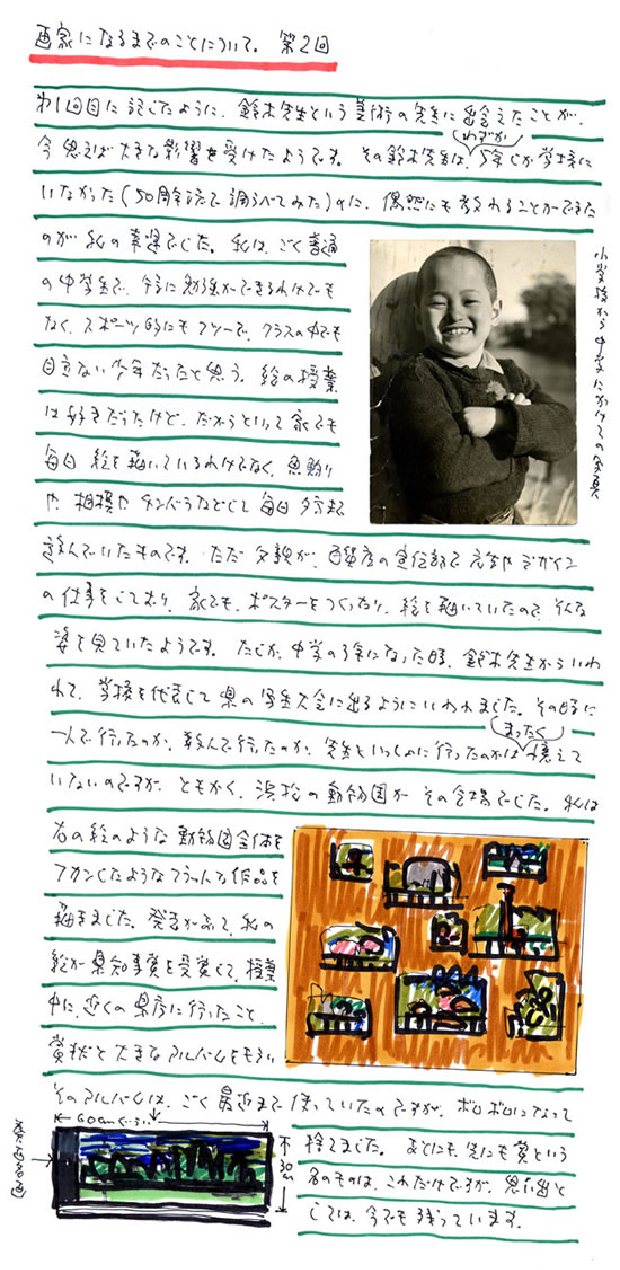 画家になるまでのことについて。 第2回
第1回目に記したように、鈴木先生という美術の先生に出会えたことが、
今思えば大きな影響を受けたようです。その鈴木先生は、わずか5年しか学校に
いなかった(50周年誌で調らべてみた)のに、偶然にも教われることができた
のが私の幸運でした。私は、ごく普通
の中学生で、特に勉強ができるわけでも
なく、スポーツ的にもフツーで、クラスの中でも
目立ない少年だったと思う。絵の授業
は好きだったけど、だからといって家でも
毎日 絵を描いているわけでなく、魚釣り
や 相撲や チャンバラなどして 毎日 夕方まで
遊んでいたものです。ただ 父親が、百貨店の宣伝部で
の仕事をしており、家でも、ポスターをつくったり、絵を描いていたので、そんな
姿を見ていたようです。たしか、中学の3年になった時、鈴木先生からいわ
れて、学校を代表して県の写生大会に出るようにいわれました。その時に
一人で行ったのか、数人で行ったのか、先生といっしょに行ったのかはまったく憶えて
いないのですが、ともかく、浜松の動物園が その会場でした。私は
右の絵のような 動物園全体を
フカンしたような フラットな作品を
描きました。発表が あって、私の
絵が県知事賞を受賞して、授業
中に、近くの県庁に行ったこと、
賞状と大きなアルバムをもらい
そのアルバムは、ごく最近まで使っていたのですが、ボロボロになって
捨てました。あとにも先にも賞という
名のものは、これだけですが、思い出と
しては、今でも残っています。
小学校から中学にかけての写真
60cmくらい
30cm